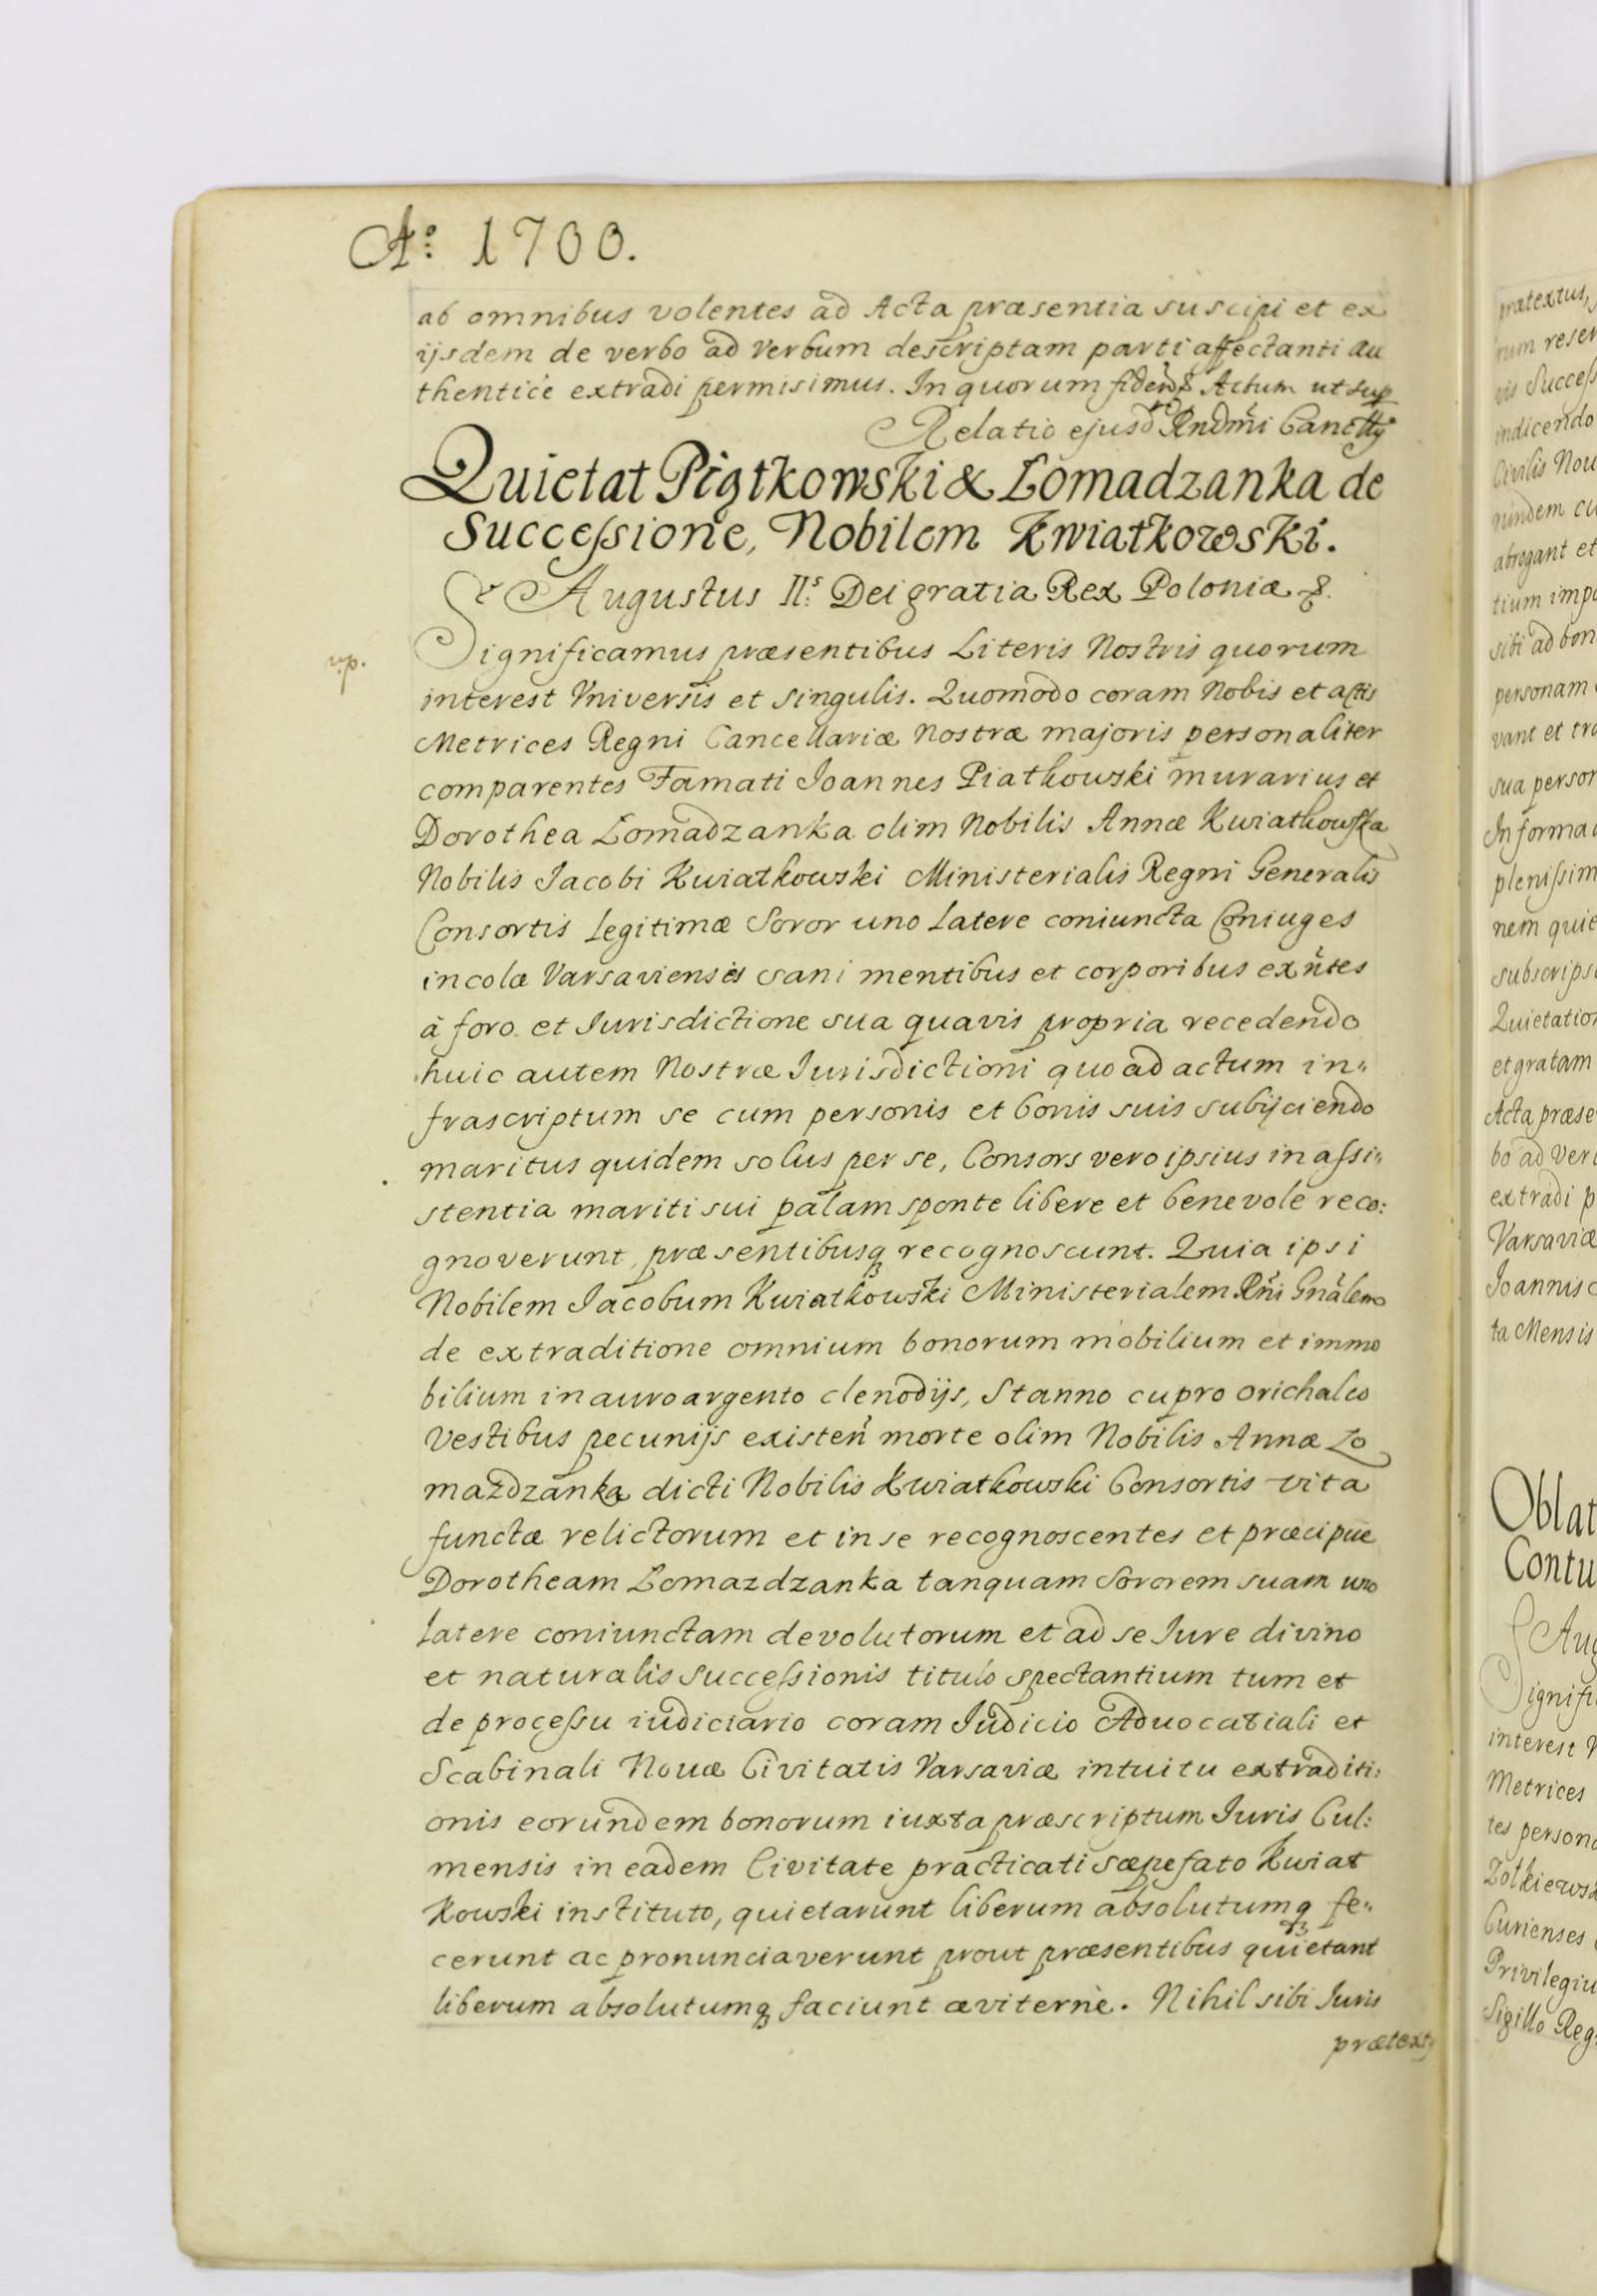 Aº 1700.
ab omnibus volentes ad Acta præsentia suscipi et ex
ijsdem de verbo ad Verbum descriptam parti affectanti Au
thenticè extradi permisimus. In quorum fidem Actum ut sup
Relatio ejusd Rndmi Cancllrij
Quietat Piątkowski & Lomadzanka de
Successione, Nobilem Kwiatkowski.
Augustus IIs Dei gratia Rex Poloniæ &.
Significamus præsentibus Literis Nostris quorum
np.
interest Vniversis et singulis. Quomodo coram Nobis et actis
Metrices Regni Cancellariæ Nostræ majoris personaliter
comparentes Famati Joannes Piatkowski murarius et
Dorothea Lomadzanka olim Nobilis Annæ Kwiatkowska
Nobilis Jacobi Kwiatkowski Ministerialis Regni Generalis
Consortis Legitimæ Soror uno Latere coniuncta Coniuges
incolæ Varsavienses sani mentibus et corporibus exñtes
à foro et Jurisdictione sua quavis propria recedendo
huic autem Nostræ Jurisdictioni quo ad actum in„
frascriptum se cum personis et bonis suis subijciendo
maritus quidem solus per se, Consors vero ipsius in assi„
stentia mariti sui palam sponte libere et benevole reco:
gnoverunt, præsentibusq recognoscunt. Quia ipsi
Nobilem Jacobum Kwiatkowski Ministerialem Rñi Gñalem
de extraditione omnium bonorum mobilium et immo
bilium in auro argento clenodijs, Stanno cupro orichalco
Vestibus pecunijs existeñ morte olim Nobilis Annæ Lo
mazdzanka dicti Nobilis Kwiatkowski Consortis vita
functæ relictorum et in se recognoscentes et præcipue
Dorotheam Lomazdzanka tanquam Sororem suam uno
Latere coniunctam devolutorum et ad se Jure divino
et naturalis Successionis titulo spectantium tum et
de processu iudiciario coram Judicio Aduocatiali et
Scabinali Nouæ Civitatis Varsaviæ intuitu extraditi:
onis eorundem bonorum iuxta præscriptum Juris Cul:
mensis in eadem Civitate practicati sæpefato Kwiat
Kowski instituto, quietarunt liberum absolutumq fe„
cerunt ac pronunciaverunt prout præsentibus quietant
liberum absolutumq faciunt æviternè. Nihil sibi Juris
prætextq
prætextus,
indicendo
Civilis Nou
abrogant et
sibi ad bon
personam
vant et tra
sua person
Informa
plenissim
nem quie
subscrips
Quietation
et gratam
Acta præse
bo ad Ver
extradi p
Varsaviæ
Joannis
ta Mensis
Oblat
Contu
Aug
Signifi
interest V
Metrices
tes person
Zolkiewsk
Curienses
Privilegiu
Sigillo Reg